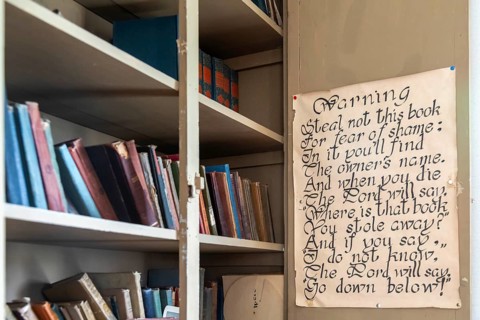 Warning
Steal not this book
For fear of shame:
In it you'll find
The owner's name.
And when you die
The Lord will say,
"Where is that book
You stole away?"
And if you say.,,
I do not know.
The Lord will say,
"Go down below!"